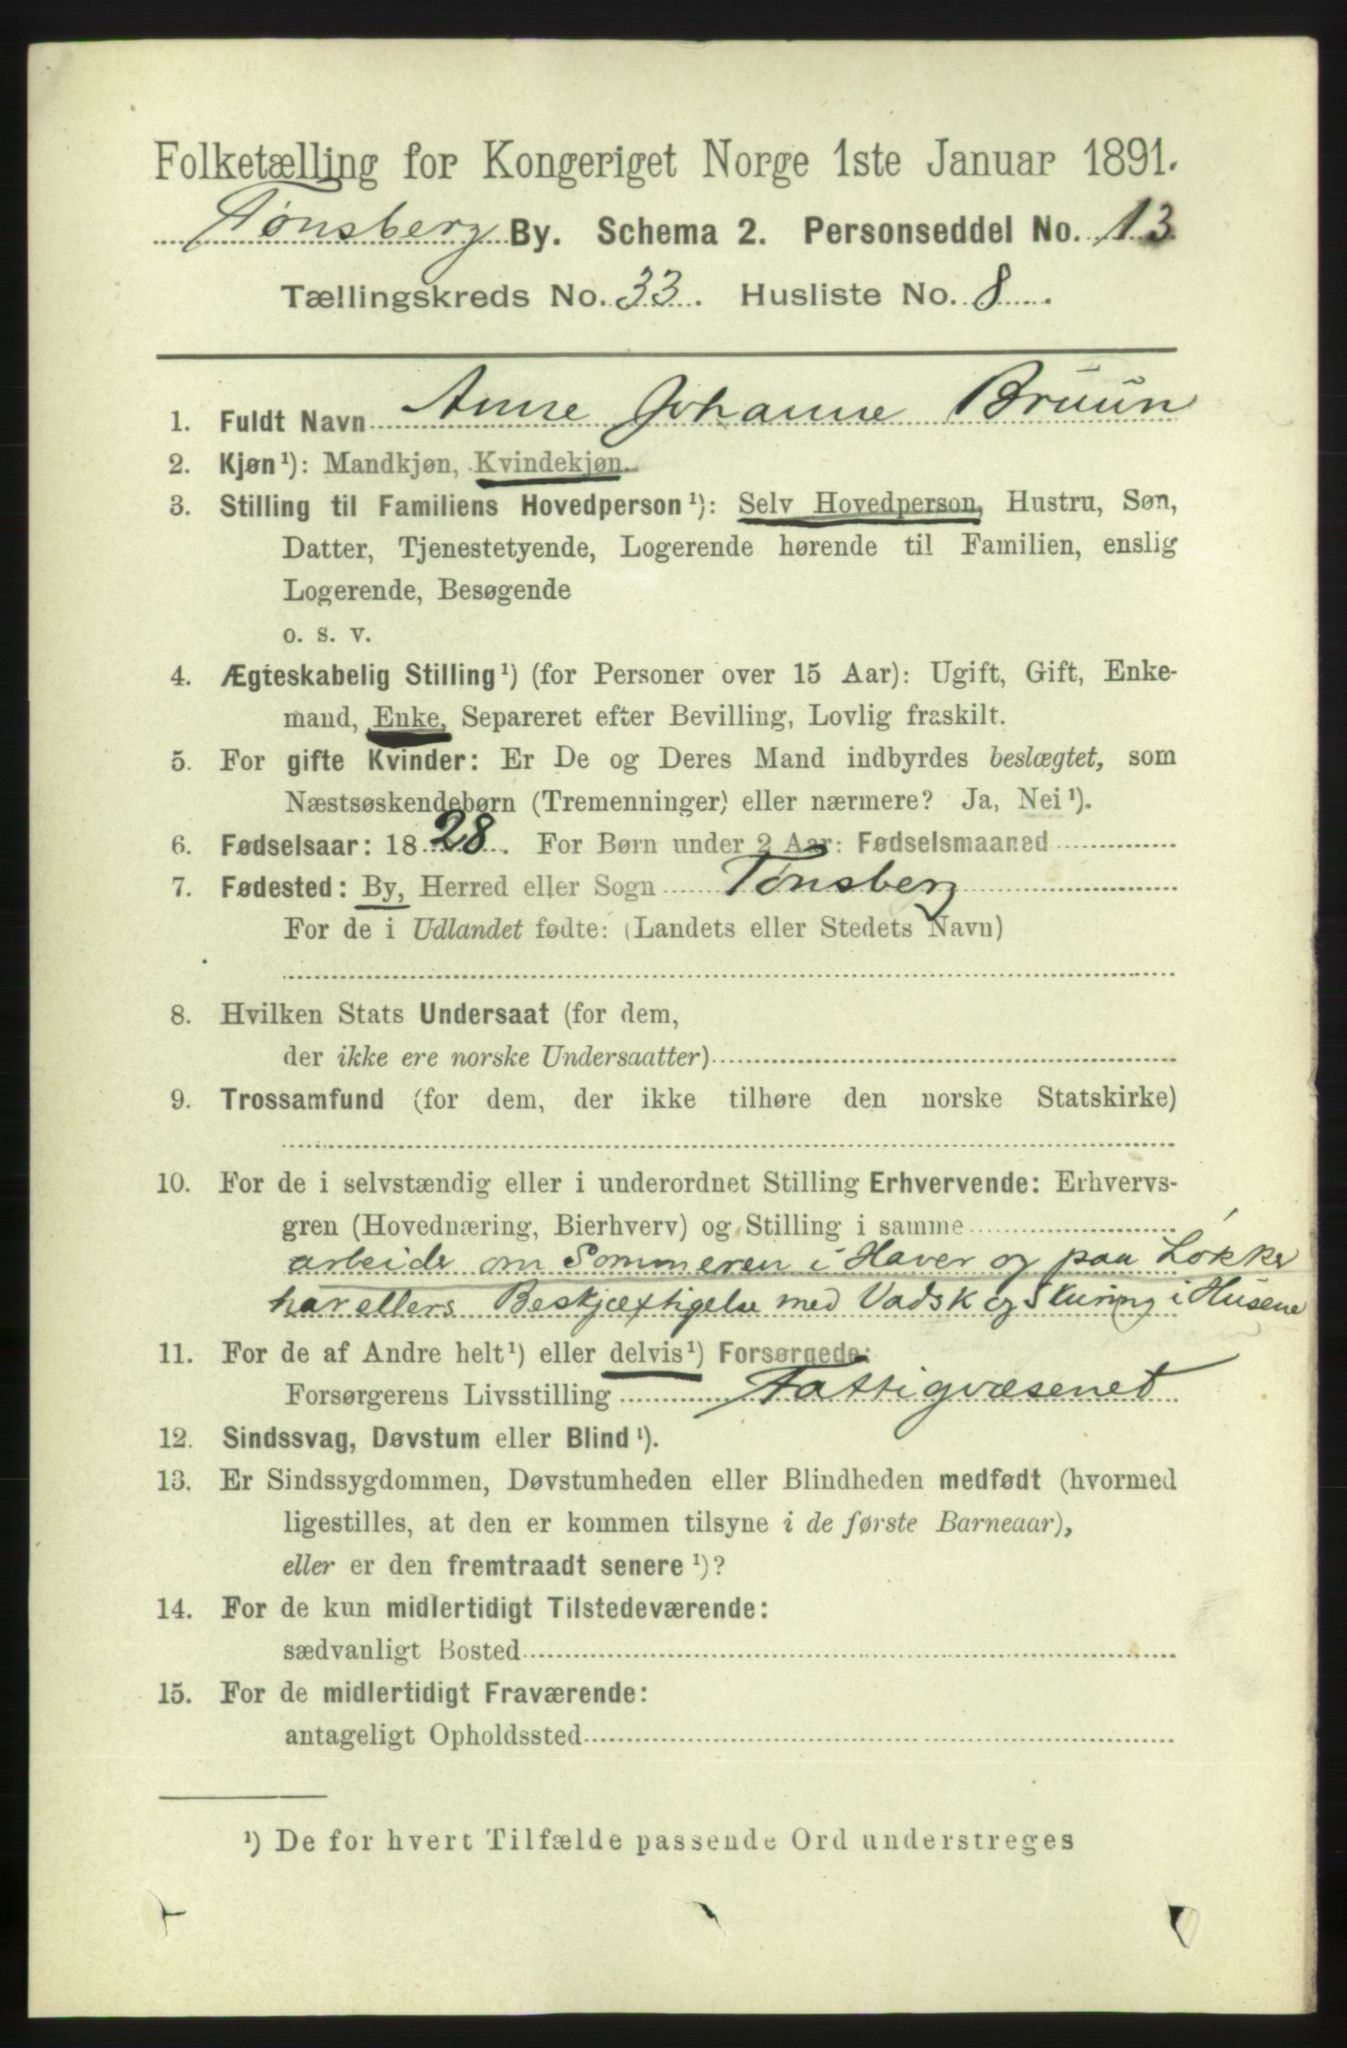 Folketælling for Kongeriget Norge 1ste Januar 1891.
Tønsberg By. Schema 2. Personseddel No. 13
Tællingskreds No. 33. Husliste No. 8.
1. Fuldt Navn Anne Johanne Bruun
2. Kjøn¹): Mandkjøn, Kvindekjøn.
3. Stilling til Familiens Hovedperson¹): Selv Hovedperson, Hustru, Søn,
Datter, Tjenestetyende, Logerende hørende til Familien, enslig
Logerende, Besøgende
o. s. v.
4. Ægteskabelig Stilling¹) (for Personer over 15 Aar): Ugift, Gift, Enke-
mand, Enke, Separeret efter Bevilling, Lovlig fraskilt.
5. For gifte Kvinder: Er De og Deres Mand indbyrdes beslægtet, som
Næstsøskendebørn (Tremenninger) eller nærmere? Ja, Nei¹).
6. Fødselsaar: 1828. For Børn under 2 Aar: Fødselsmaaned
7. Fødested: By, Herred eller Sogn Tønsberg
For de i Udlandet fødte: (Landets eller Stedets Navn)
8. Hvilken Stats Undersaat (for dem,
der ikke ere norske Undersaatter)
9. Trossamfund (for dem, der ikke tilhøre den norske Statskirke)
10. For de i selvstændig eller i underordnet Stilling Erhvervende: Erhvervs-
gren (Hovednæring, Bierhverv) og Stilling i samme
arbeider om Sommeren i Haver og paa Løkker
har ellers Beskjæftigelse med Vadsk og Skuring i Husene
11. For de af Andre helt¹) eller delvis¹) Forsørgede:
Forsørgerens Livsstilling Fattigvæsenet
12. Sindssvag, Døvstum eller Blind¹).
13. Er Sindssygdommen, Døvstumheden eller Blindheden medfødt (hvormed
ligestilles, at den er kommen tilsyne i de første Barneaar),
eller er den fremtraadt senere¹)?
14. For de kun midlertidigt Tilstedeværende:
sædvanligt Bosted
15. For de midlertidigt Fraværende:
antageligt Opholdssted
¹) De for hvert Tilfælde passende Ord understreges